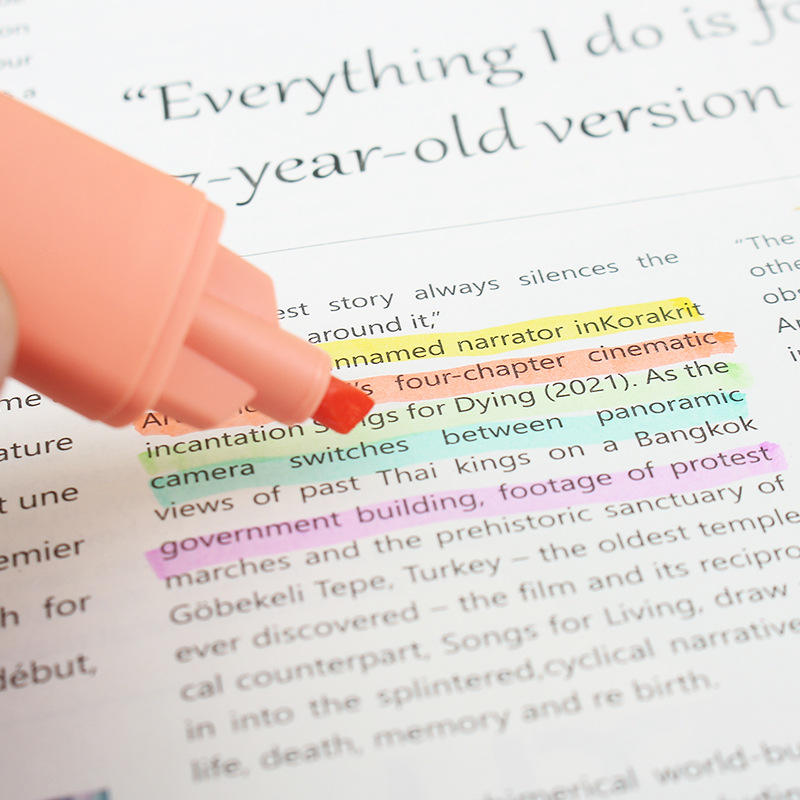 “Everything I do is fo
7-year-old version
me
ature
t une
emier
h for
début,
est story always silences the
around it,”
nnamed narrator inKorakrit
's four-chapter cinematic
incantation Songs for Dying (2021). As the
camera switches between panoramic
views of past Thai kings on a Bangkok
government building, footage of protest
marches and the prehistoric sanctuary of
Göbekeli Tepe, Turkey – the oldest temple
ever discovered – the film and its recipro
cal counterpart, Songs for Living, draw
in into the splintered,cyclical narrative
life, death, memory and re birth.
himerical world-bu
“The
othe
obs
Ar
i